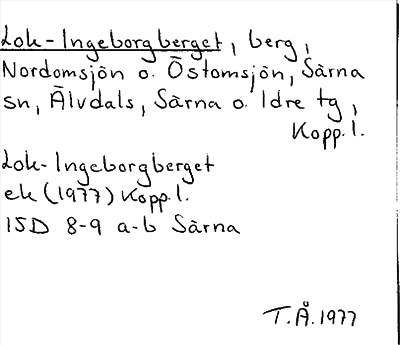 Lok-Ingeborgberget, berg,
Nordomsjön o. Östomsjön, Särna
sn, Älvdals, Särna o. Idre tg,
Kopp. l.
Lok-Ingeborgberget
ek (1977) Kopp. l.
15D 8-9 a-b Särna
T.Å. 1977